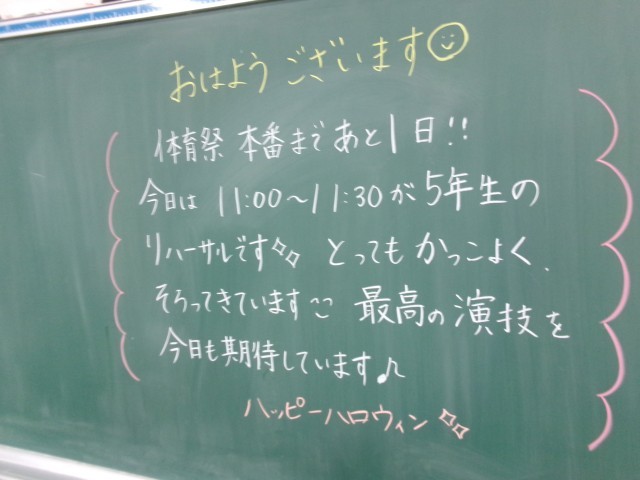 おはようございます☺
体育祭 本番まであと1日!!
今日は 11:00〜11:30が5年生の
リハーサルです とってもかっこよく、
そろってきています 最高の演技を
今日も期待しています♪
ハッピーハロウィン